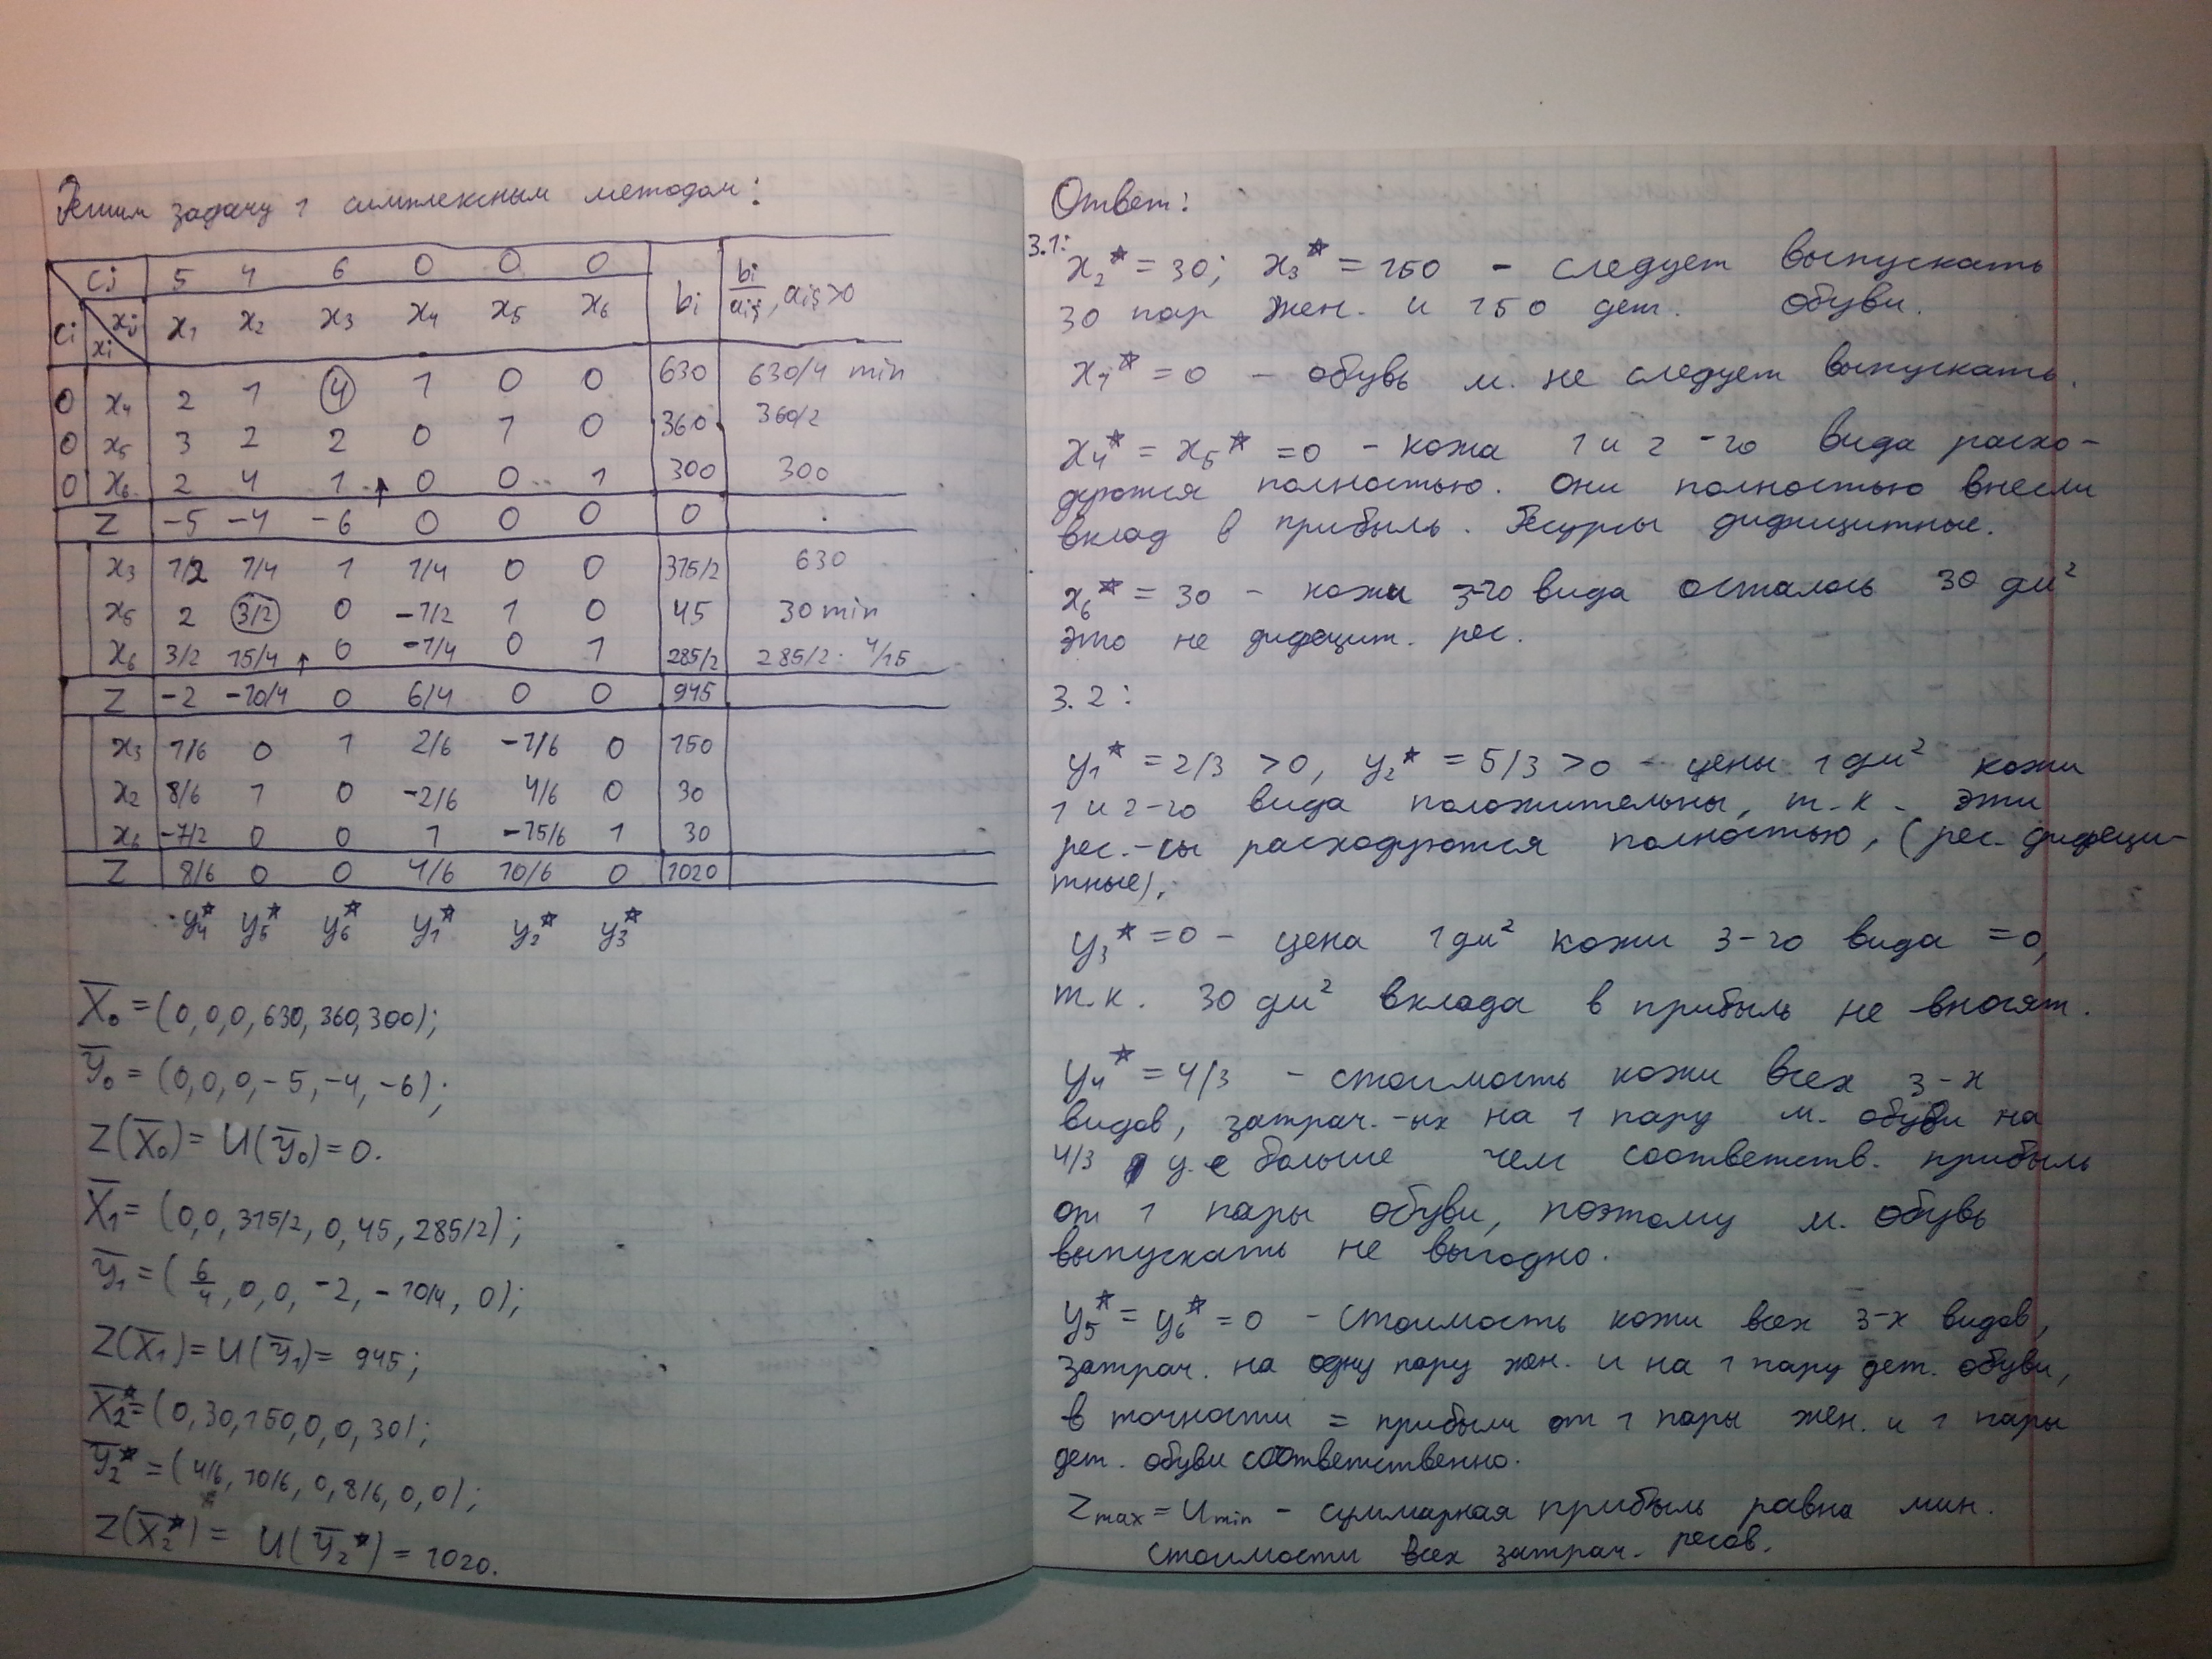 Решим задачу 1 симплексным методом:
cj 5 4 6 0 0 0 bi bi/ais, ais>0
ci xi xj x1 x2 x3 x4 x5 x6
0 x4 2 1 4 1 0 0 630 630/4 min
0 x5 3 2 2 0 1 0 360 360/2
0 x6 2 4 1 ↑ 0 0 1 300 300
Z -5 -4 -6 0 0 0 0
x3 1/2 1/4 1 1/4 0 0 315/2 630
x5 2 3/2 0 -1/2 1 0 45 30 min
x6 3/2 15/4 ↑ 0 -1/4 0 1 285/2 285/2 · 4/15
Z -2 -10/4 0 6/4 0 0 945
x3 1/6 0 1 2/6 -1/6 0 150
x2 8/6 1 0 -2/6 4/6 0 30
x6 -7/2 0 0 1 -15/6 1 30
Z 8/6 0 0 4/6 10/6 0 1020
y4* y5* y6* y1* y2* y3*
X̄0 = (0, 0, 0, 630, 360, 300);
ȳ0 = (0, 0, 0, -5, -4, -6);
Z(X̄0) = U(ȳ0) = 0.
X̄1 = (0, 0, 315/2, 0, 45, 285/2);
ȳ1 = (6/4, 0, 0, -2, -10/4, 0);
Z(X̄1) = U(ȳ1) = 945;
X̄2* = (0, 30, 150, 0, 0, 30);
ȳ2* = (4/6, 10/6, 0, 8/6, 0, 0);
Z(X̄2*) = U(ȳ2*) = 1020.
Ответ:
3.1:
x2* = 30; x3* = 150 - следует выпускать
30 пар жен. и 150 дет. обуви.
x1* = 0 - обувь м. не следует выпускать.
x4* = x5* = 0 - кожа 1 и 2-го вида расхо-
дуются полностью. Они полностью внесли
вклад в прибыль. Ресурсы дифицитные.
x6* = 30 - кожи 3-го вида осталось 30 дм²
это не дифецит. рес.
3.2:
y1* = 2/3 >0, y2* = 5/3 >0 - цены 1 дм² кожи
1 и 2-го вида положительны, т.к. эти
рес.-сы расходуются полностью, (рес. дифеци-
тные),
y3* = 0 - цена 1 дм² кожи 3-го вида = 0,
т.к. 30 дм² вклада в прибыль не вносят.
y4* = 4/3 - стоимость кожи всех 3-х
видов, затрач.-ых на 1 пару м. обуви на
4/3 у.е больше чем соответств. прибыль
от 1 пары обуви, поэтому м. обувь
выпускать не выгодно.
y5* = y6* = 0 - стоимость кожи всех 3-х видов,
затрач. на одну пару жен. и на 1 пару дет. обуви,
в точности = прибыли от 1 пары жен. и 1 пары
дет. обуви соответственно.
Zmax = Umin - суммарная прибыль равна мин.
стоимости всех затрач. ресов.